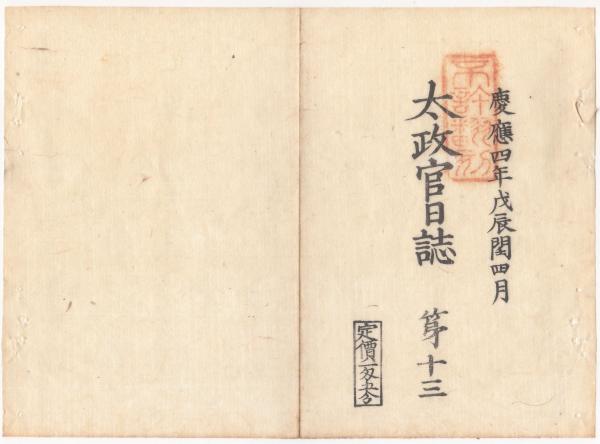 慶應四年戊辰閏四月
太政官日誌 第十三
不許翻刻
定價一匁五分